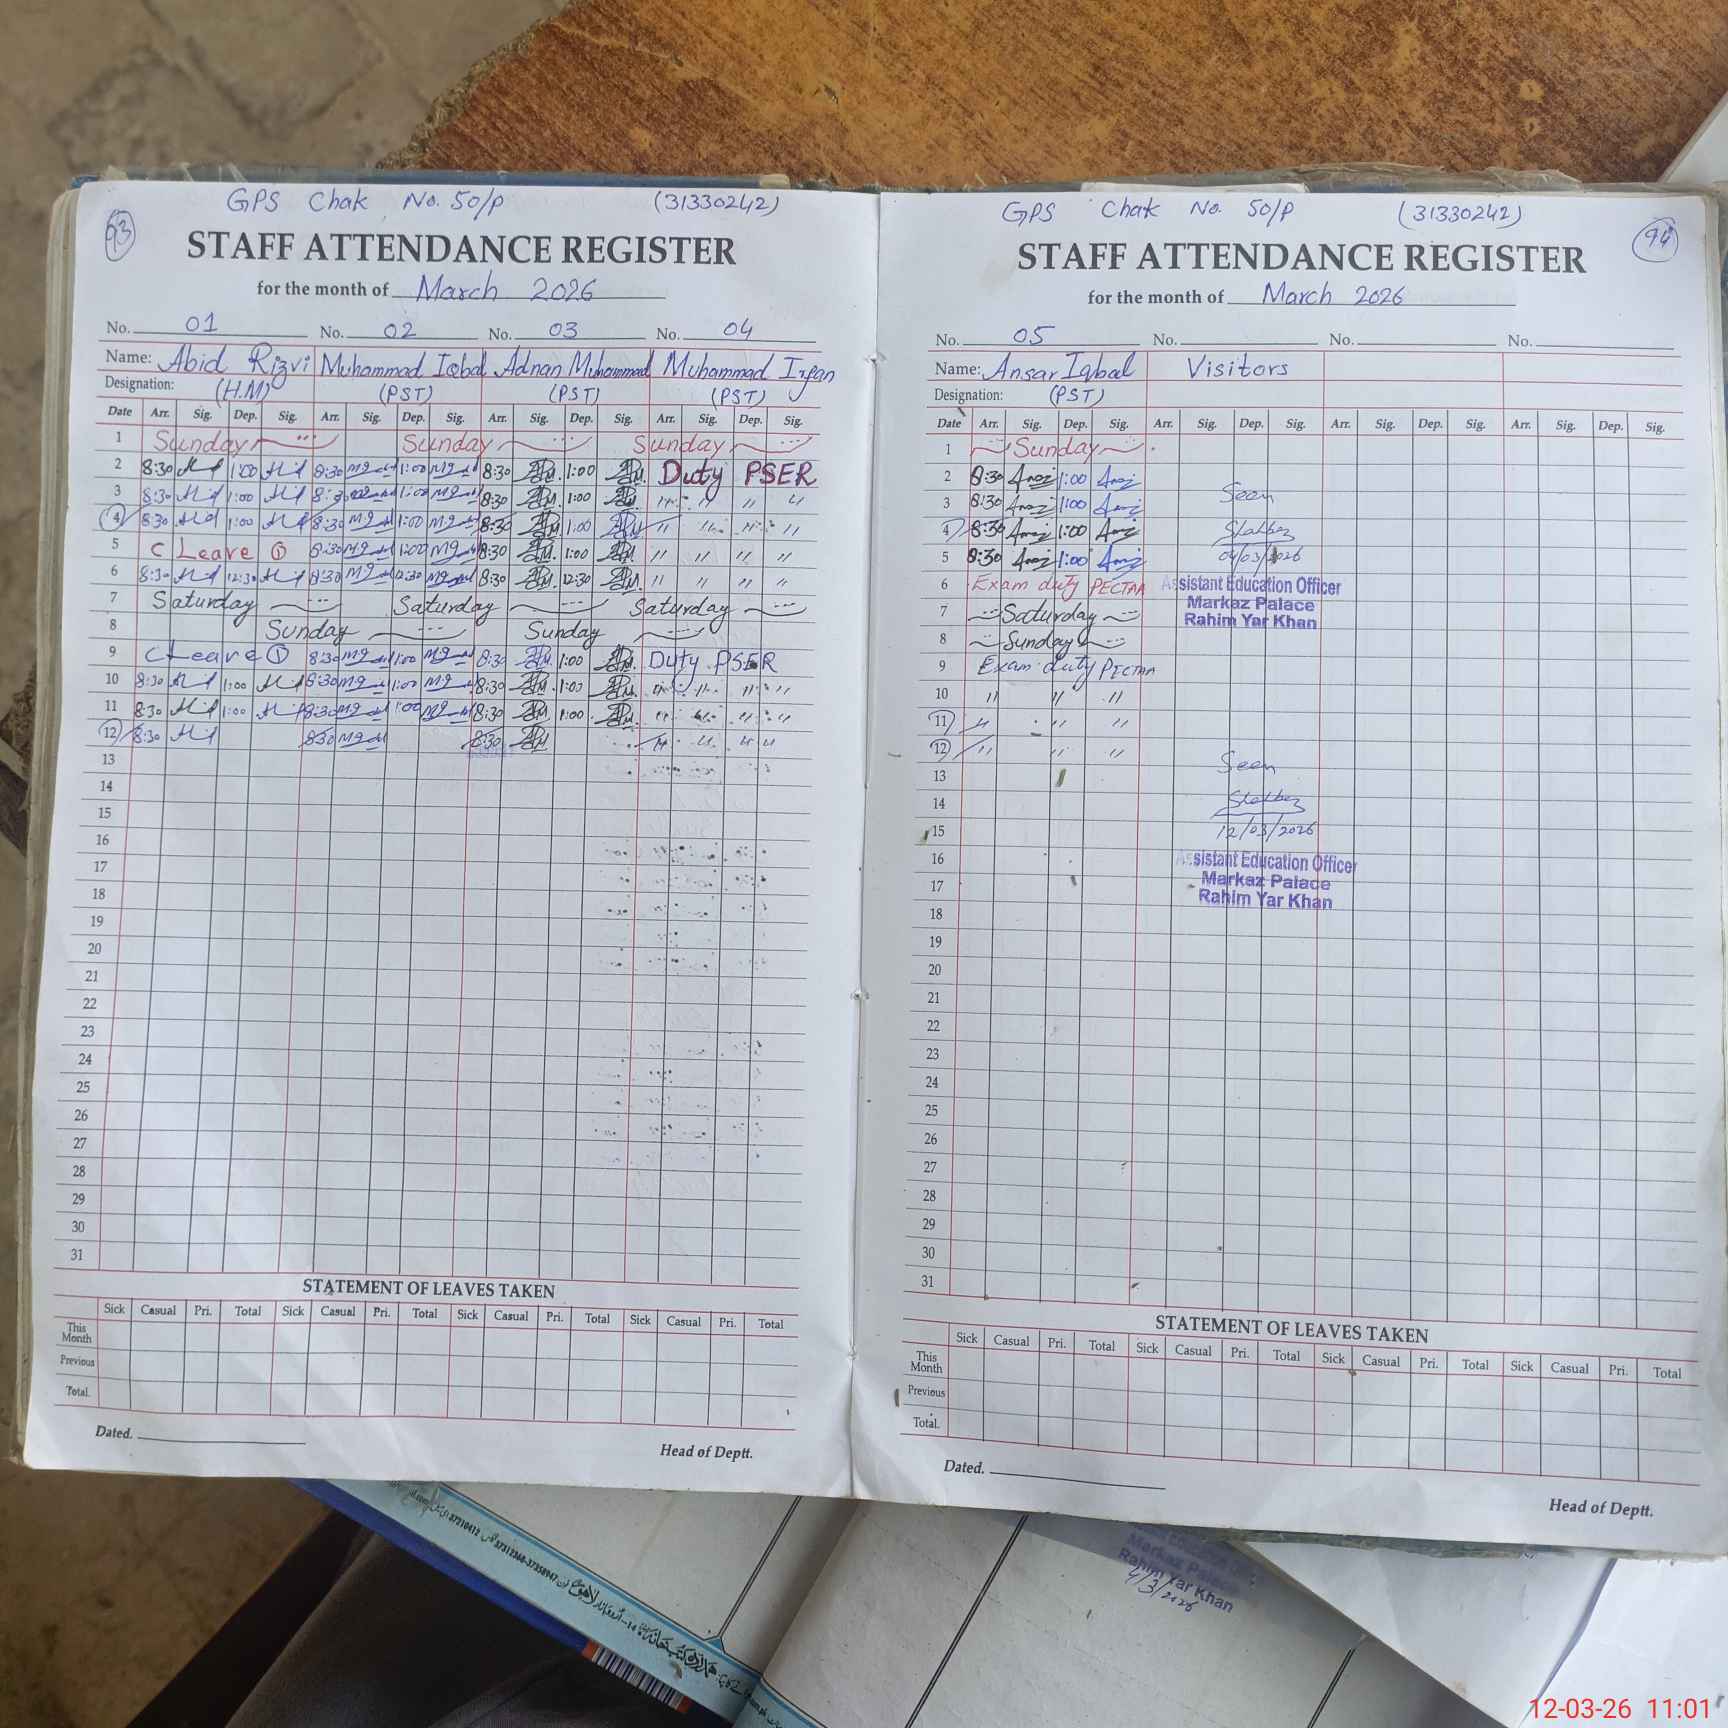 GPS Chak No. 50/P (31330242)
93
STAFF ATTENDANCE REGISTER
for the month of March 2026
No. 01 No. 02 No. 03 No. 04
Name: Abid Rizvi Muhammad Iqbal Adnan Muhammad Muhammad Irfan
Designation: (H.M) (PST) (PST) (PST)
Date Arr. Sig. Dep. Sig. Arr. Sig. Dep. Sig. Arr. Sig. Dep. Sig. Arr. Sig. Dep. Sig.
1 Sunday Sunday Sunday
2 8:30 1:00 8:30 1:00 8:30 1:00 Duty PSER
3 8:30 1:00 8:30 1:00 8:30 1:00 " " " "
4 8:30 1:00 8:30 1:00 8:30 1:00 " " " "
5 C Leave ① 8:30 1:00 8:30 1:00 " " " "
6 8:30 12:30 8:30 12:30 8:30 12:30 " " " "
7 Saturday Saturday Saturday
8 Sunday Sunday
9 C Leave ① 8:30 1:00 8:30 1:00 Duty PSER
10 8:30 1:00 8:30 1:00 8:30 1:00 " " " "
11 8:30 1:00 8:30 1:00 8:30 1:00 " " " "
12 8:30 8:30 8:30 " " " "
13
14
15
16
17
18
19
20
21
22
23
24
25
26
27
28
29
30
31
STATEMENT OF LEAVES TAKEN
Sick Casual Pri. Total Sick Casual Pri. Total Sick Casual Pri. Total Sick Casual Pri. Total
This Month
Previous
Total.
Dated.
Head of Deptt.
GPS Chak No. 50/P (31330242)
94
STAFF ATTENDANCE REGISTER
for the month of March 2026
No. 05 No. No. No.
Name: Ansar Iqbal Visitors
Designation: (PST)
Date Arr. Sig. Dep. Sig. Arr. Sig. Dep. Sig. Arr. Sig. Dep. Sig. Arr. Sig. Dep. Sig.
1 Sunday
2 8:30 1:00
3 8:30 1:00 Seen
4 8:30 1:00
5 8:30 1:00 04/03/2026
6 Exam duty PECTAA Assistant Education Officer
7 Saturday Markaz Palace
Rahim Yar Khan
8 Sunday
9 Exam duty PECTAA
10 " " "
11 " " "
12 " " "
13 Seen
14
15 12/03/2026
16 Assistant Education Officer
17 Markaz Palace
Rahim Yar Khan
18
19
20
21
22
23
24
25
26
27
28
29
30
31
STATEMENT OF LEAVES TAKEN
Sick Casual Pri. Total Sick Casual Pri. Total Sick Casual Pri. Total Sick Casual Pri. Total
This Month
Previous
Total.
Dated.
Head of Deptt.
Markaz Palace
Rahim Yar Khan
4/3/2026
12-03-26 11:01